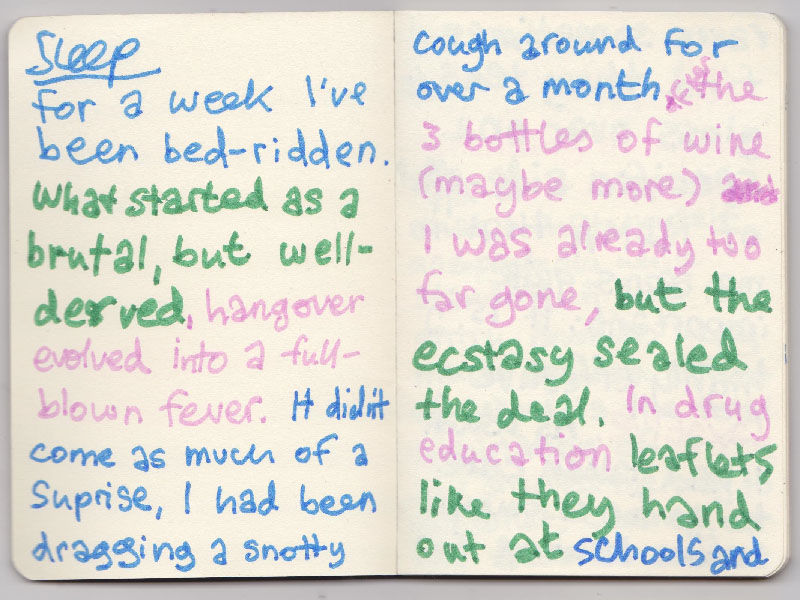 Sleep
for a week I've
been bed-ridden.
What started as a
brutal, but well-
derved, hangover
evolved into a full-
blown fever. It didn't
come as much of a
Suprise, I had been
dragging a snotty
cough around for
over a month, the
3 bottles of wine
(maybe more)
I was already too
far gone, but the
ecstasy sealed
the deal. In drug
education leaflets
like they hand
out at schools and